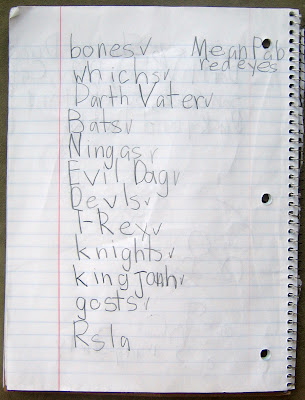 bones✓
Mean
red eyes
whichs✓
Darth Vater✓
Bats✓
Ningas✓
Evil Dag✓
Devls✓
T-Rex✓
knights✓
king
gosts✓
Rsla